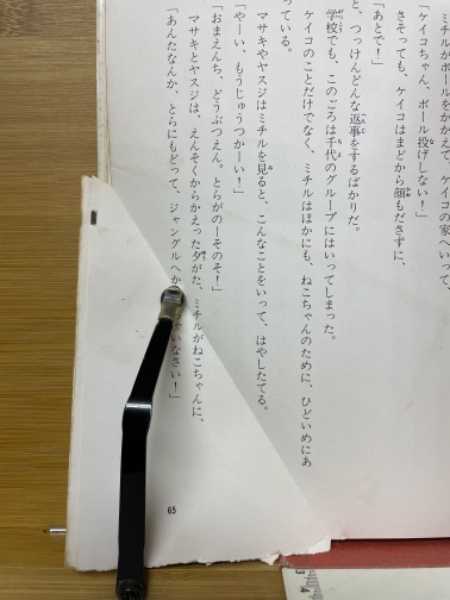 ミチルがボールをかかえて、ケイコの家へいって、
「ケイコちゃん、ボール投げしない！」
さそっても、ケイコはまどから顔もださずに、
「あとで！」
と、つっけんどんな返事をするばかりだ。
学校でも、このごろは千代のグループにはいってしまった。
ケイコのことだけでなく、ミチルはほかにも、ねこちゃんのために、ひどいめにあ
っている。
マサキやヤスジはミチルを見ると、こんなことをいって、はやしたてる。
「やーい、もうじゅうつかーい！」
「おまえんち、どうぶつえん。とらがのーそのそ！」
マサキとヤスジは、えんそくからかえった夕がた、ミチルがねこちゃんに、
「あんたなんか、とらにもどって、ジャングルへか いなさい！」
65